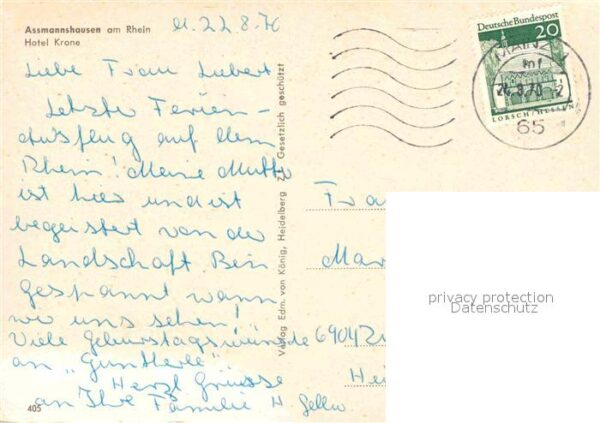 Assmannshausen am Rhein
Hotel Krone
22.8.70
Liebe Frau Liebert
Letzter Ferien-
ausflug auf dem
Rhein! Meine Mutter
ist hier und ist
begeistert von der
Landschaft Bin
gespannt wann
wir uns sehen!
Viele Geburtstagswünsche
an "Gunterle".
Herzl Grüsse
an Ihre Familie H
405
Verlag Edm. von König, Heidelberg Gesetzlich geschützt
Deutsche Bundespost
20
LORSCH/HESSEN
MAINZ
24.8.70
65
Frau
Mar
6904
Hei
privacy protection
Datenschutz